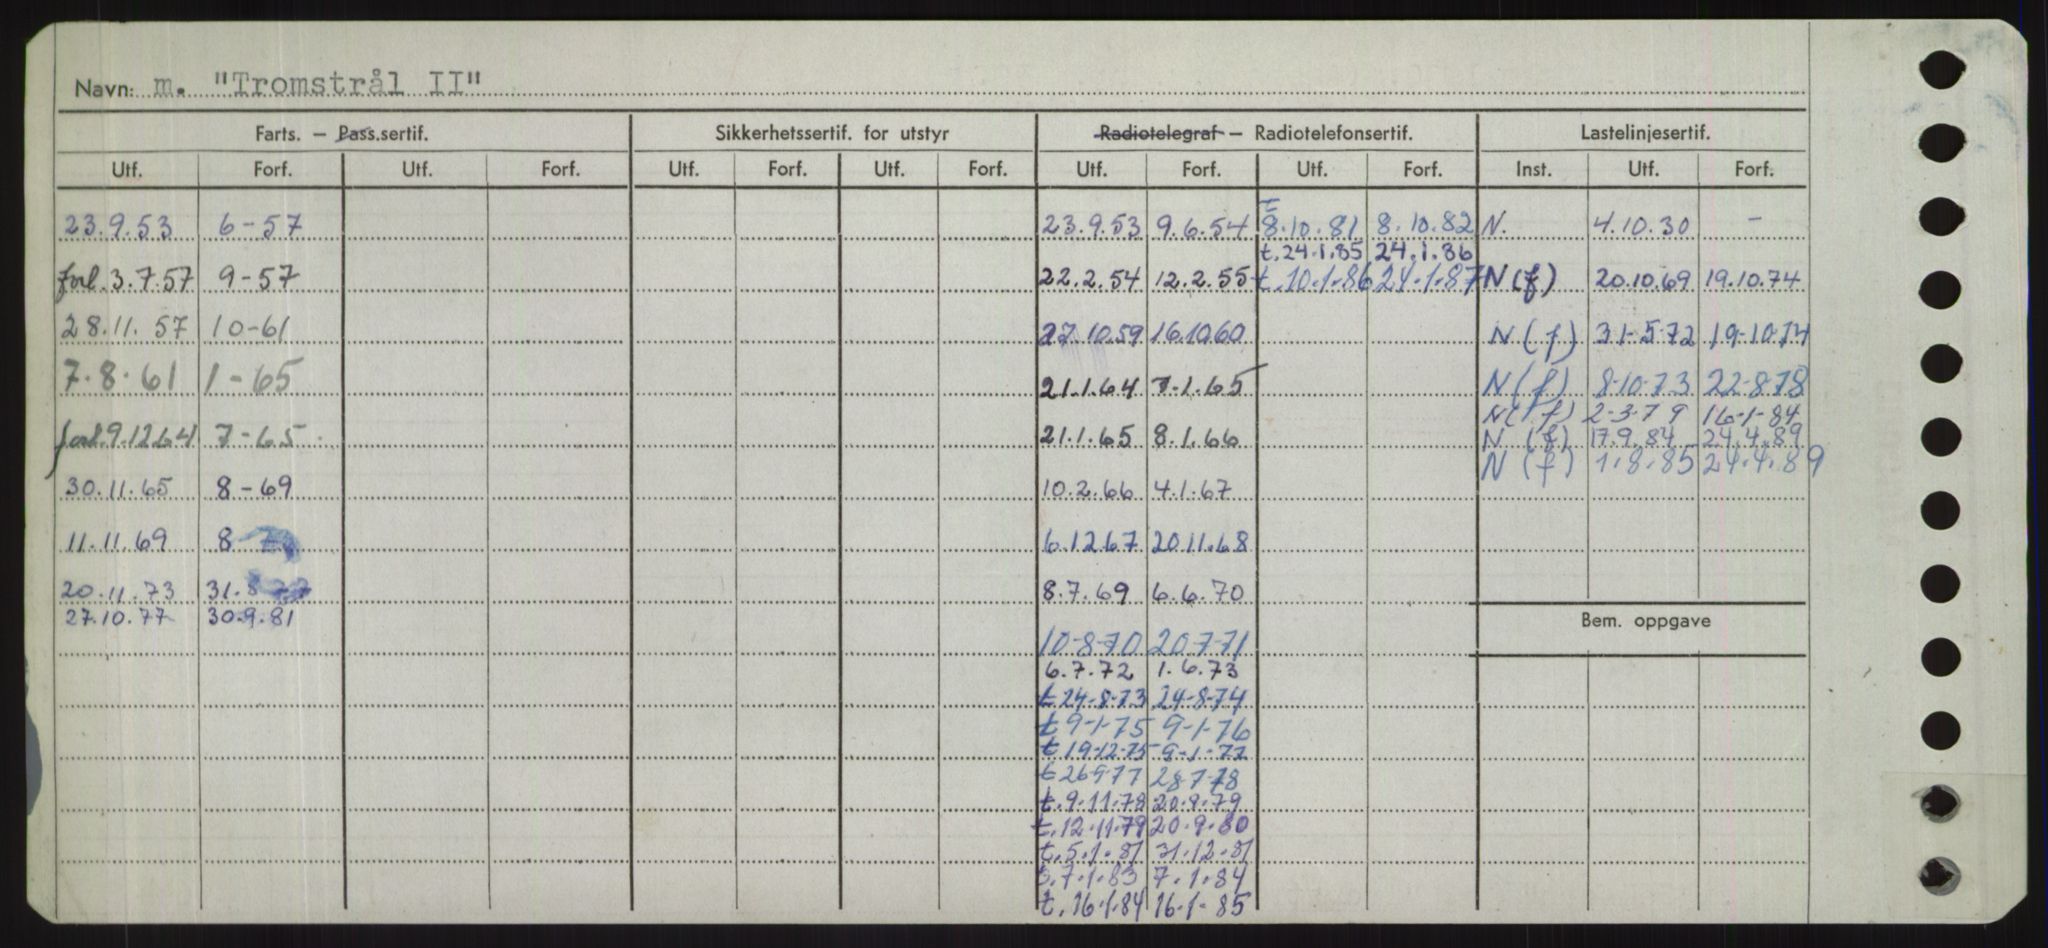 Navn: m. "Tromstrål II"
Farts. – Pass.sertif. Sikkerhetssertif. for utstyr Radiotelegraf – Radiotelefonsertif. Lastelinjesertif.
Utf. Forf. Utf. Forf. Utf. Forf. Utf. Forf. Utf. Forf. Utf. Forf. Inst. Utf. Forf.
23.9.53 6-57 23.9.53 9.6.54 8.10.81 8.10.82 N. 4.10.30 -
t.24.1.85 24.1.86
forl.3.7.57 9-57 22.2.54 12.2.55 t.10.1.86 24.1.87 N(f) 20.10.69 19.10.74
28.11.57 10-61 27.10.59 16.10.60 N(f) 31-5-72 19-10-74
7.8.61 1-65 21.1.64 7.1.65 N(f) 8-10-73 22-8-78
N(f) 2-3-79 16-1-84
forl.9.12.64 7-65 21.1.65 8.1.66 N (f) 17.9.84 24.4.89
N (f) 1.8.85 24.4.89
30.11.65 8-69 10.2.66 4.1.67
11.11.69 8- 6.12.67 20.11.68
20.11.73 31.8 8.7.69 6.6.70
27.10.77 30.9.81
Bem. oppgave
10-8-70 20-7-71
6.7.72 1.6.73
t.24-8-73 24-8-74
t 9-1-75 9-1-76
t.19-12-75 9-1-77
t 26-9-77 28-7-78
t.9.11.78 20.9.79
t.12.11.79 20.9.80
t.5.1.81 31.12.81
7.1.83 7.1.84
t.16.1.84 16.1.85